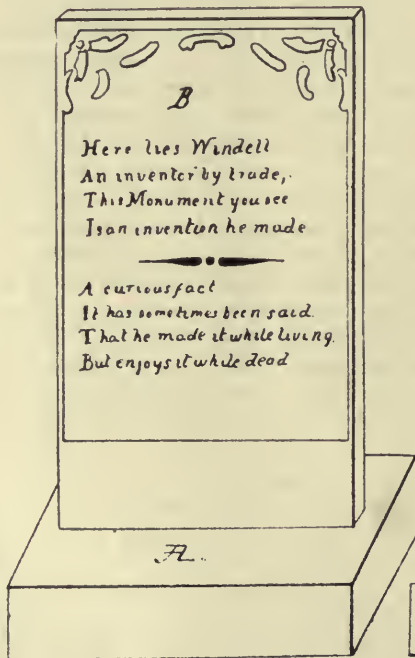 B
Here lies Windell
An inventer by trade,
This Monument you see
Is an invention he made
A curious fact
It has sometimes been said.
That he made it while living.
But enjoys it while dead
A.